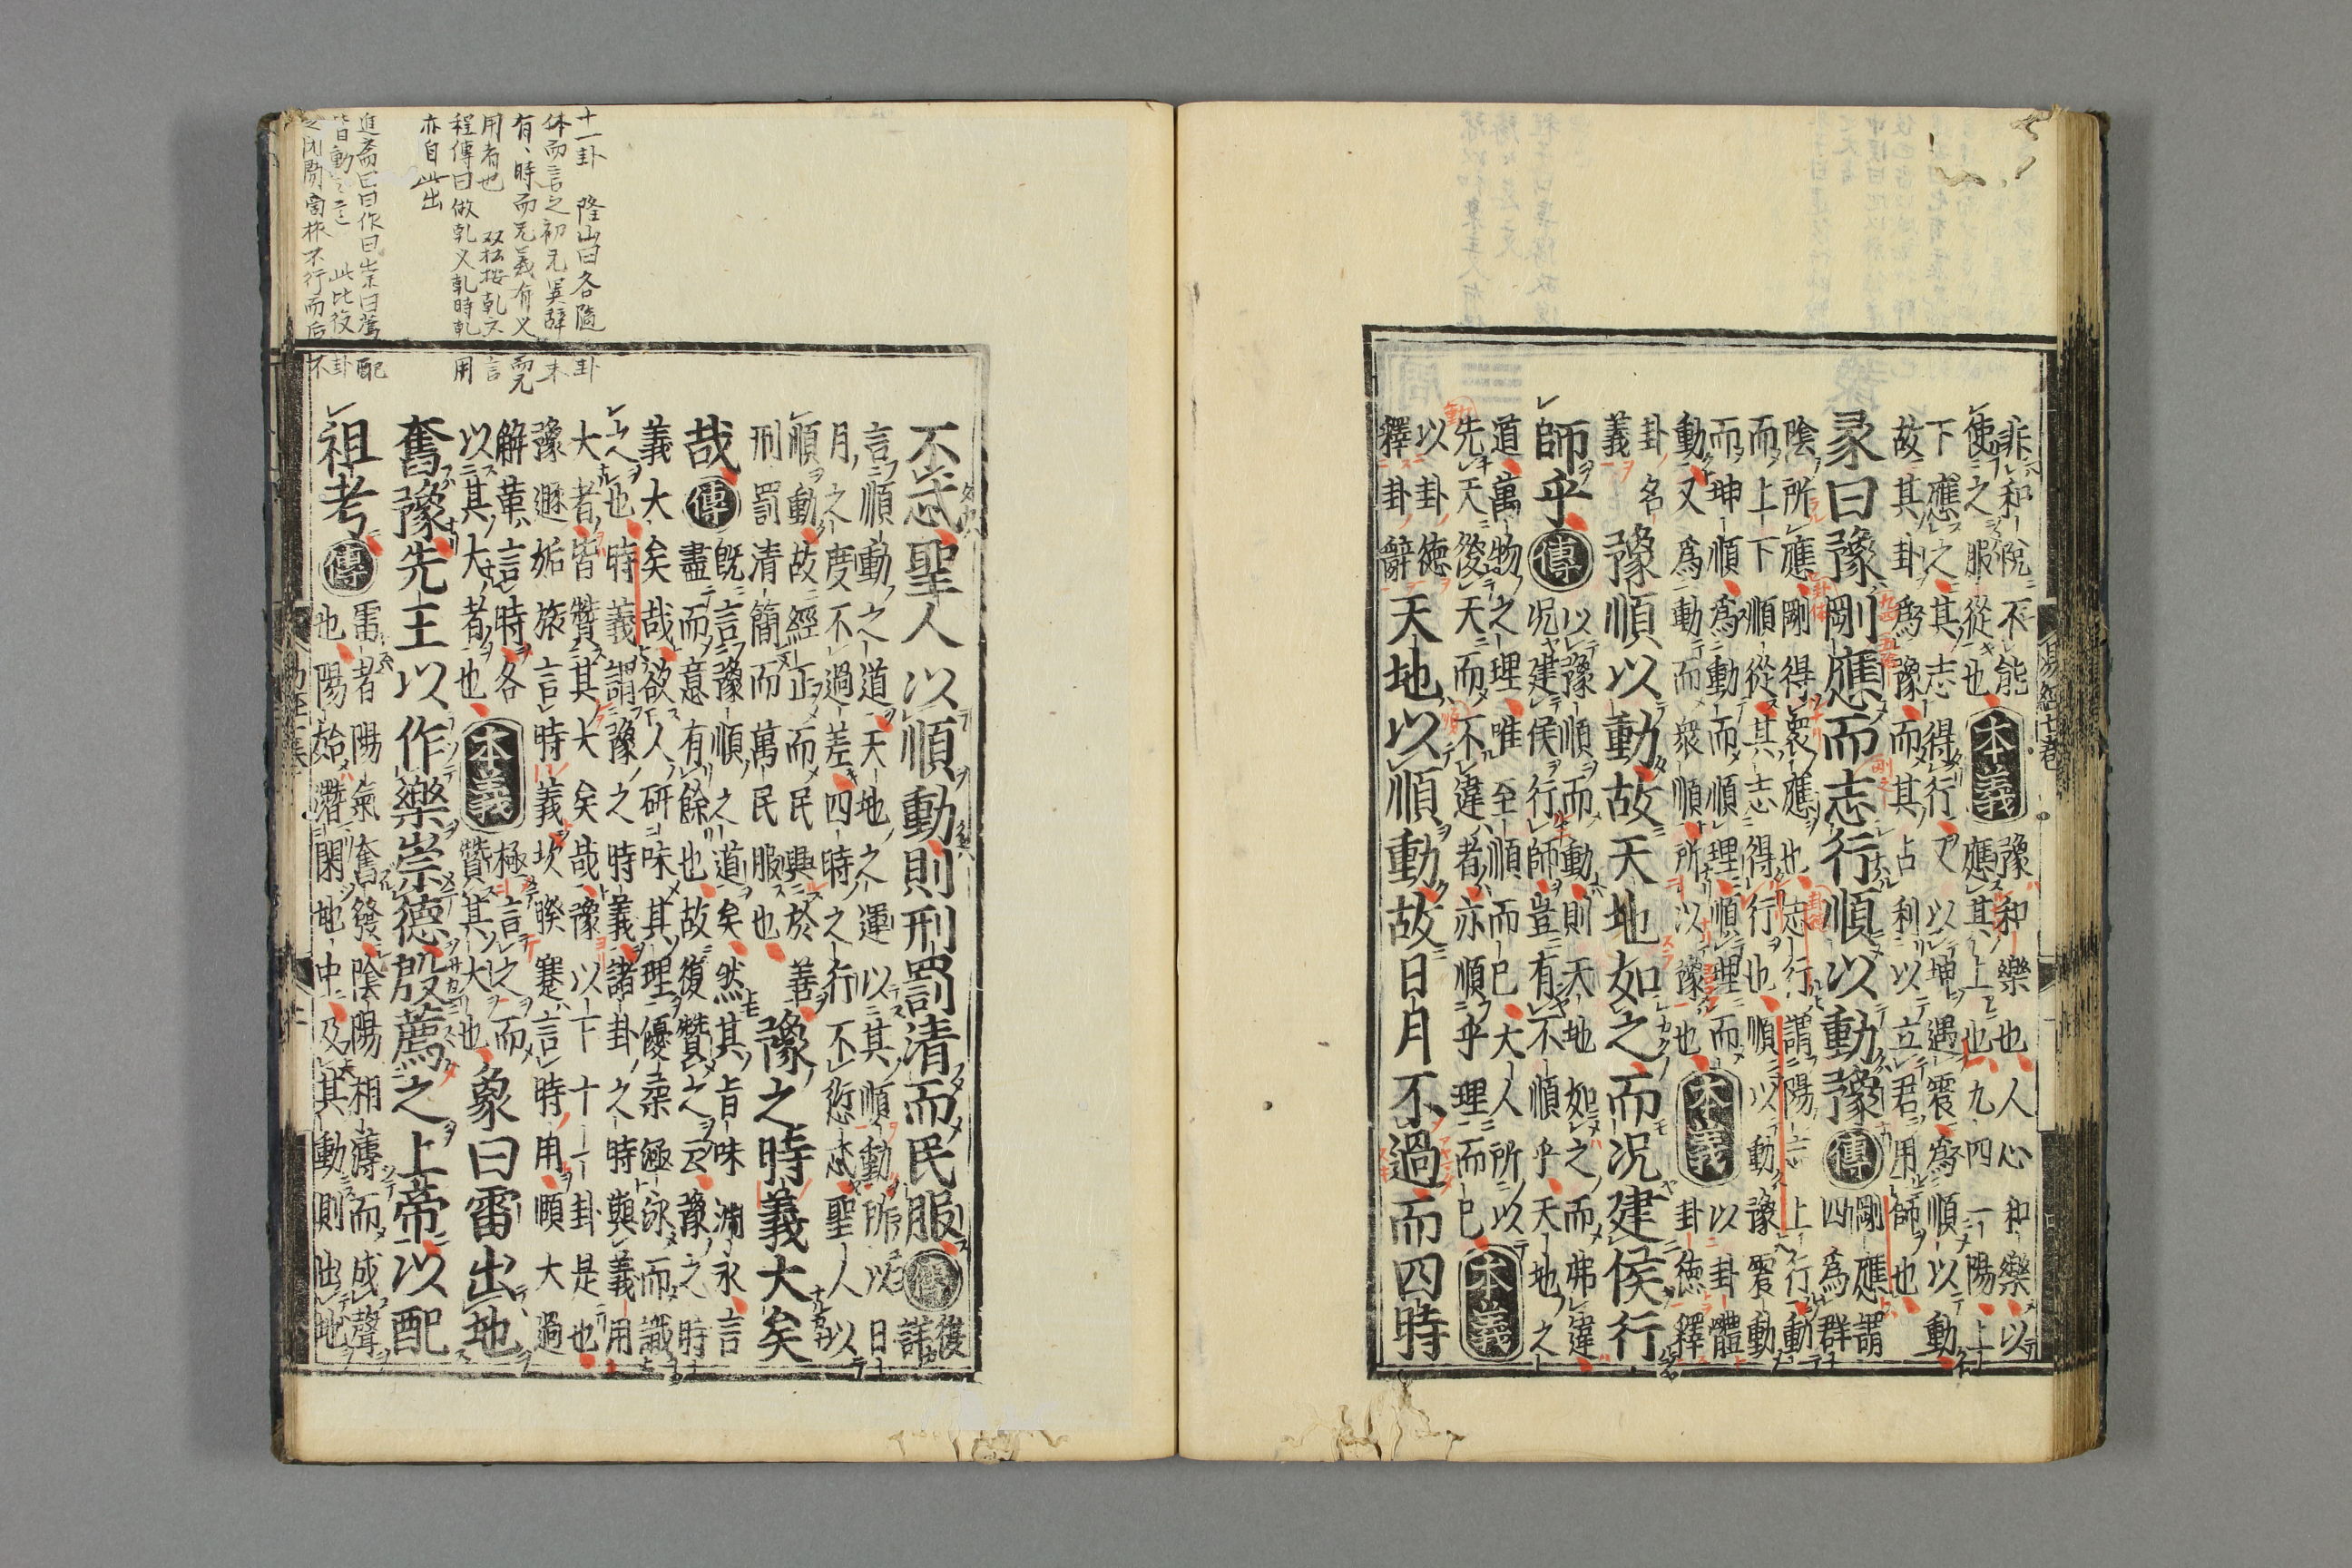 非和悅不能
使之服從也
本義
豫和樂也人心和樂以
應其上也九四一陽上
下應之其志得行又以坤遇震爲順以動
故其卦爲豫而其占利以立君用師也
彖曰豫剛應而志行順以動豫傳
剛應謂
四爲群
陰所應剛得衆應也志行謂陽志上行動
而上下順從其志得行也順以動豫震動
而坤順爲動而順理順理而
動又爲動而衆順所以豫也
本義
以卦體
卦德釋
卦名
義
豫順以動故天地如之而況建侯行
師乎傳
以豫順而動則天地如之而弗違
况建侯行師豈有不順乎天地之
道萬物之理唯至順而已大人所以
先天後天而不違者亦順乎理而已
本義
以卦德
釋卦辭
天地以順動故日月不過而四時
易經七卷
不忒聖人以順動則刑罰清而民服傳
復
詳
言順動之道天地之運以其順動所以日
月之度不過差四時之行不愆忒聖人以
順動故經正而民興於善
刑罰清簡而萬民服也
豫之時義大矣
哉傳
既言豫順之道矣然其旨味淵永言
盡而意有餘也故復贊之云豫之時
義大矣哉欲人研味其理優柔涵泳而識
之也時義謂豫之時義諸卦之時與義用
大者皆贊其大矣哉豫以下十一卦是也
豫遯姤旅言時義坎睽蹇言時用頤大過
解革言時各極言之而
以其大者也
本義
贊其大也
象曰雷出地
奮豫先王以作樂崇德殷薦之上帝以配
祖考傳
雷者陽氣奮發陰陽相薄而成聲
也陽始潛閉地中及其動則出地
十一卦 隆山曰各隨卦
体而言之初无異辞末
有、時而无義有义而无
用者也 双松按乾文言
程傳曰做乾义乾時乾用
亦自此出